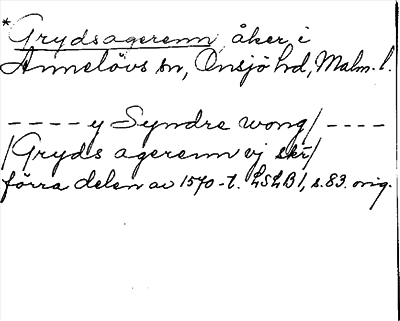 *Grydsagerenn, åker i
Annelövs sn, Onsjö hd, Malm. l.
---- y Syndre wong/ ----
/Gryds agerenn vj skr/
förra delen av 1570-t. LSLB 1, s. 83. orig.